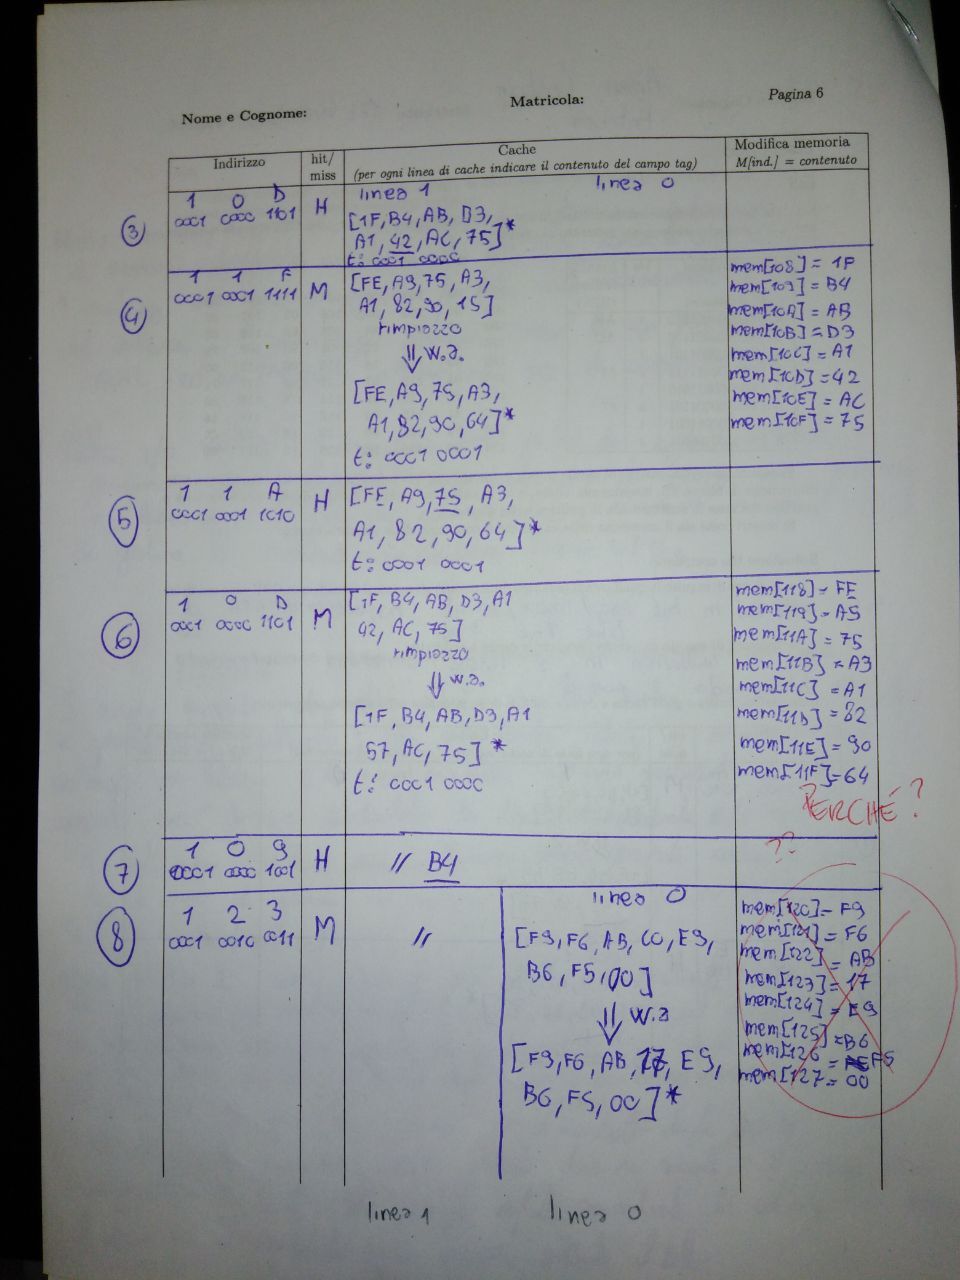 Nome e Cognome:
Matricola:
Pagina 6
Indirizzo
hit/
miss
Cache
(per ogni linea di cache indicare il contenuto del campo tag)
Modifica memoria
M[ind.] = contenuto
3
1 0 D
0001 0000 1101
H
linea 1
linea 0
[1F, B4, AB, D3,
A1, 42, AC, 75]*
t: 0001 0000
4
1 1 F
0001 0001 1111
M
[FE, A9, 75, A3,
A1, 82, 90, 15]
rimpiazzo
⇓ w.a.
[FE, A9, 75, A3,
A1, 82, 90, 64]*
t: 0001 0001
mem[108] = 1F
mem[109] = B4
mem[10A] = AB
mem[10B] = D3
mem[10C] = A1
mem[10D] = 42
mem[10E] = AC
mem[10F] = 75
5
1 1 A
0001 0001 1010
H
[FE, A9, 75, A3,
A1, 82, 90, 64]*
t: 0001 0001
6
1 0 D
0001 0000 1101
M
[1F, B4, AB, D3, A1
42, AC, 75]
rimpiazzo
⇓ w.a.
[1F, B4, AB, D3, A1
57, AC, 75]*
t: 0001 0000
mem[118] = FE
mem[119] = A9
mem[11A] = 75
mem[11B] = A3
mem[11C] = A1
mem[11D] = 82
mem[11E] = 90
mem[11F] = 64
PERCHÉ?
??
7
1 0 9
0001 0000 1001
H
// B4
8
1 2 3
0001 0010 0011
M
//
linea 0
[F9, F6, AB, C0, E9,
B6, F5, 00]
⇓ w.a
[F9, F6, AB, 17, E9,
B6, F5, 00]*
mem[120] = F9
mem[121] = F6
mem[122] = AB
mem[123] = 17
mem[124] = E9
mem[125] = B6
mem[126 = F5
mem[127 = 00
linea 1
linea 0